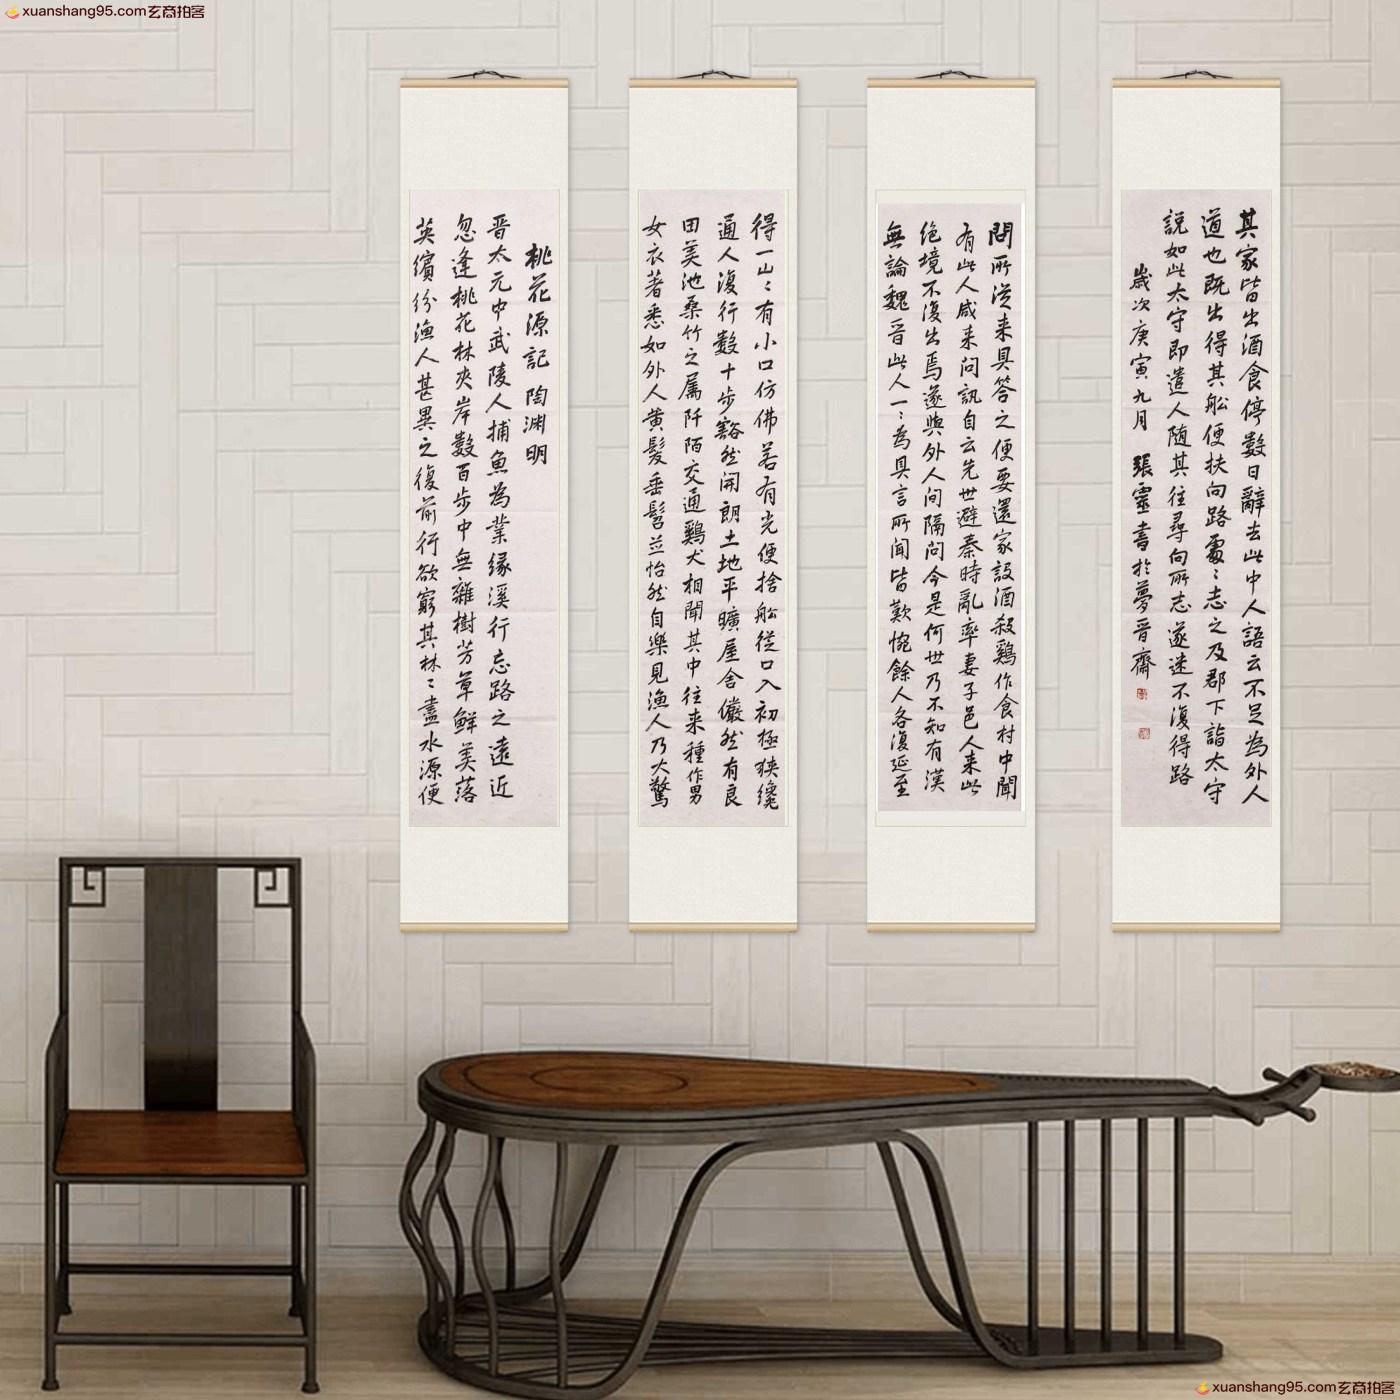 xuanshang95.com玄商拍客
桃花源記 陶渊明
晋太元中武陵人捕魚為業缘溪行忘路之遠近
忽逢桃花林夾岸數百步中無雜樹芳草鮮美落
英繽纷渔人甚異之復前行欲窮其林〻盡水源便
得一山〻有小口仿佛若有光便捨船從口入初極狭纔
通人復行數十步豁然開朗土地平曠屋舍儼然有良
田美池桑竹之属阡陌交通鷄犬相聞其中往来種作男
女衣著悉如外人黄髮垂髫並怡然自樂見渔人乃大驚
問所從来具答之便要還家設酒殺鷄作食村中聞
有此人咸来問訊自云先世避秦時亂率妻子邑人来此
绝境不復出焉遂與外人间隔問今是何世乃不知有漢
無論魏晋此人一〻為具言所闻皆歎惋餘人各復延至
其家皆出酒食停數日辭去此中人語云不足為外人
道也既出得其船便扶向路處〻志之及郡下詣太守
説如此太守即遣人随其往尋向所志遂迷不復得路
歲次庚寅九月 張靈書於夢晋齋
xuanshang95.com玄商拍客